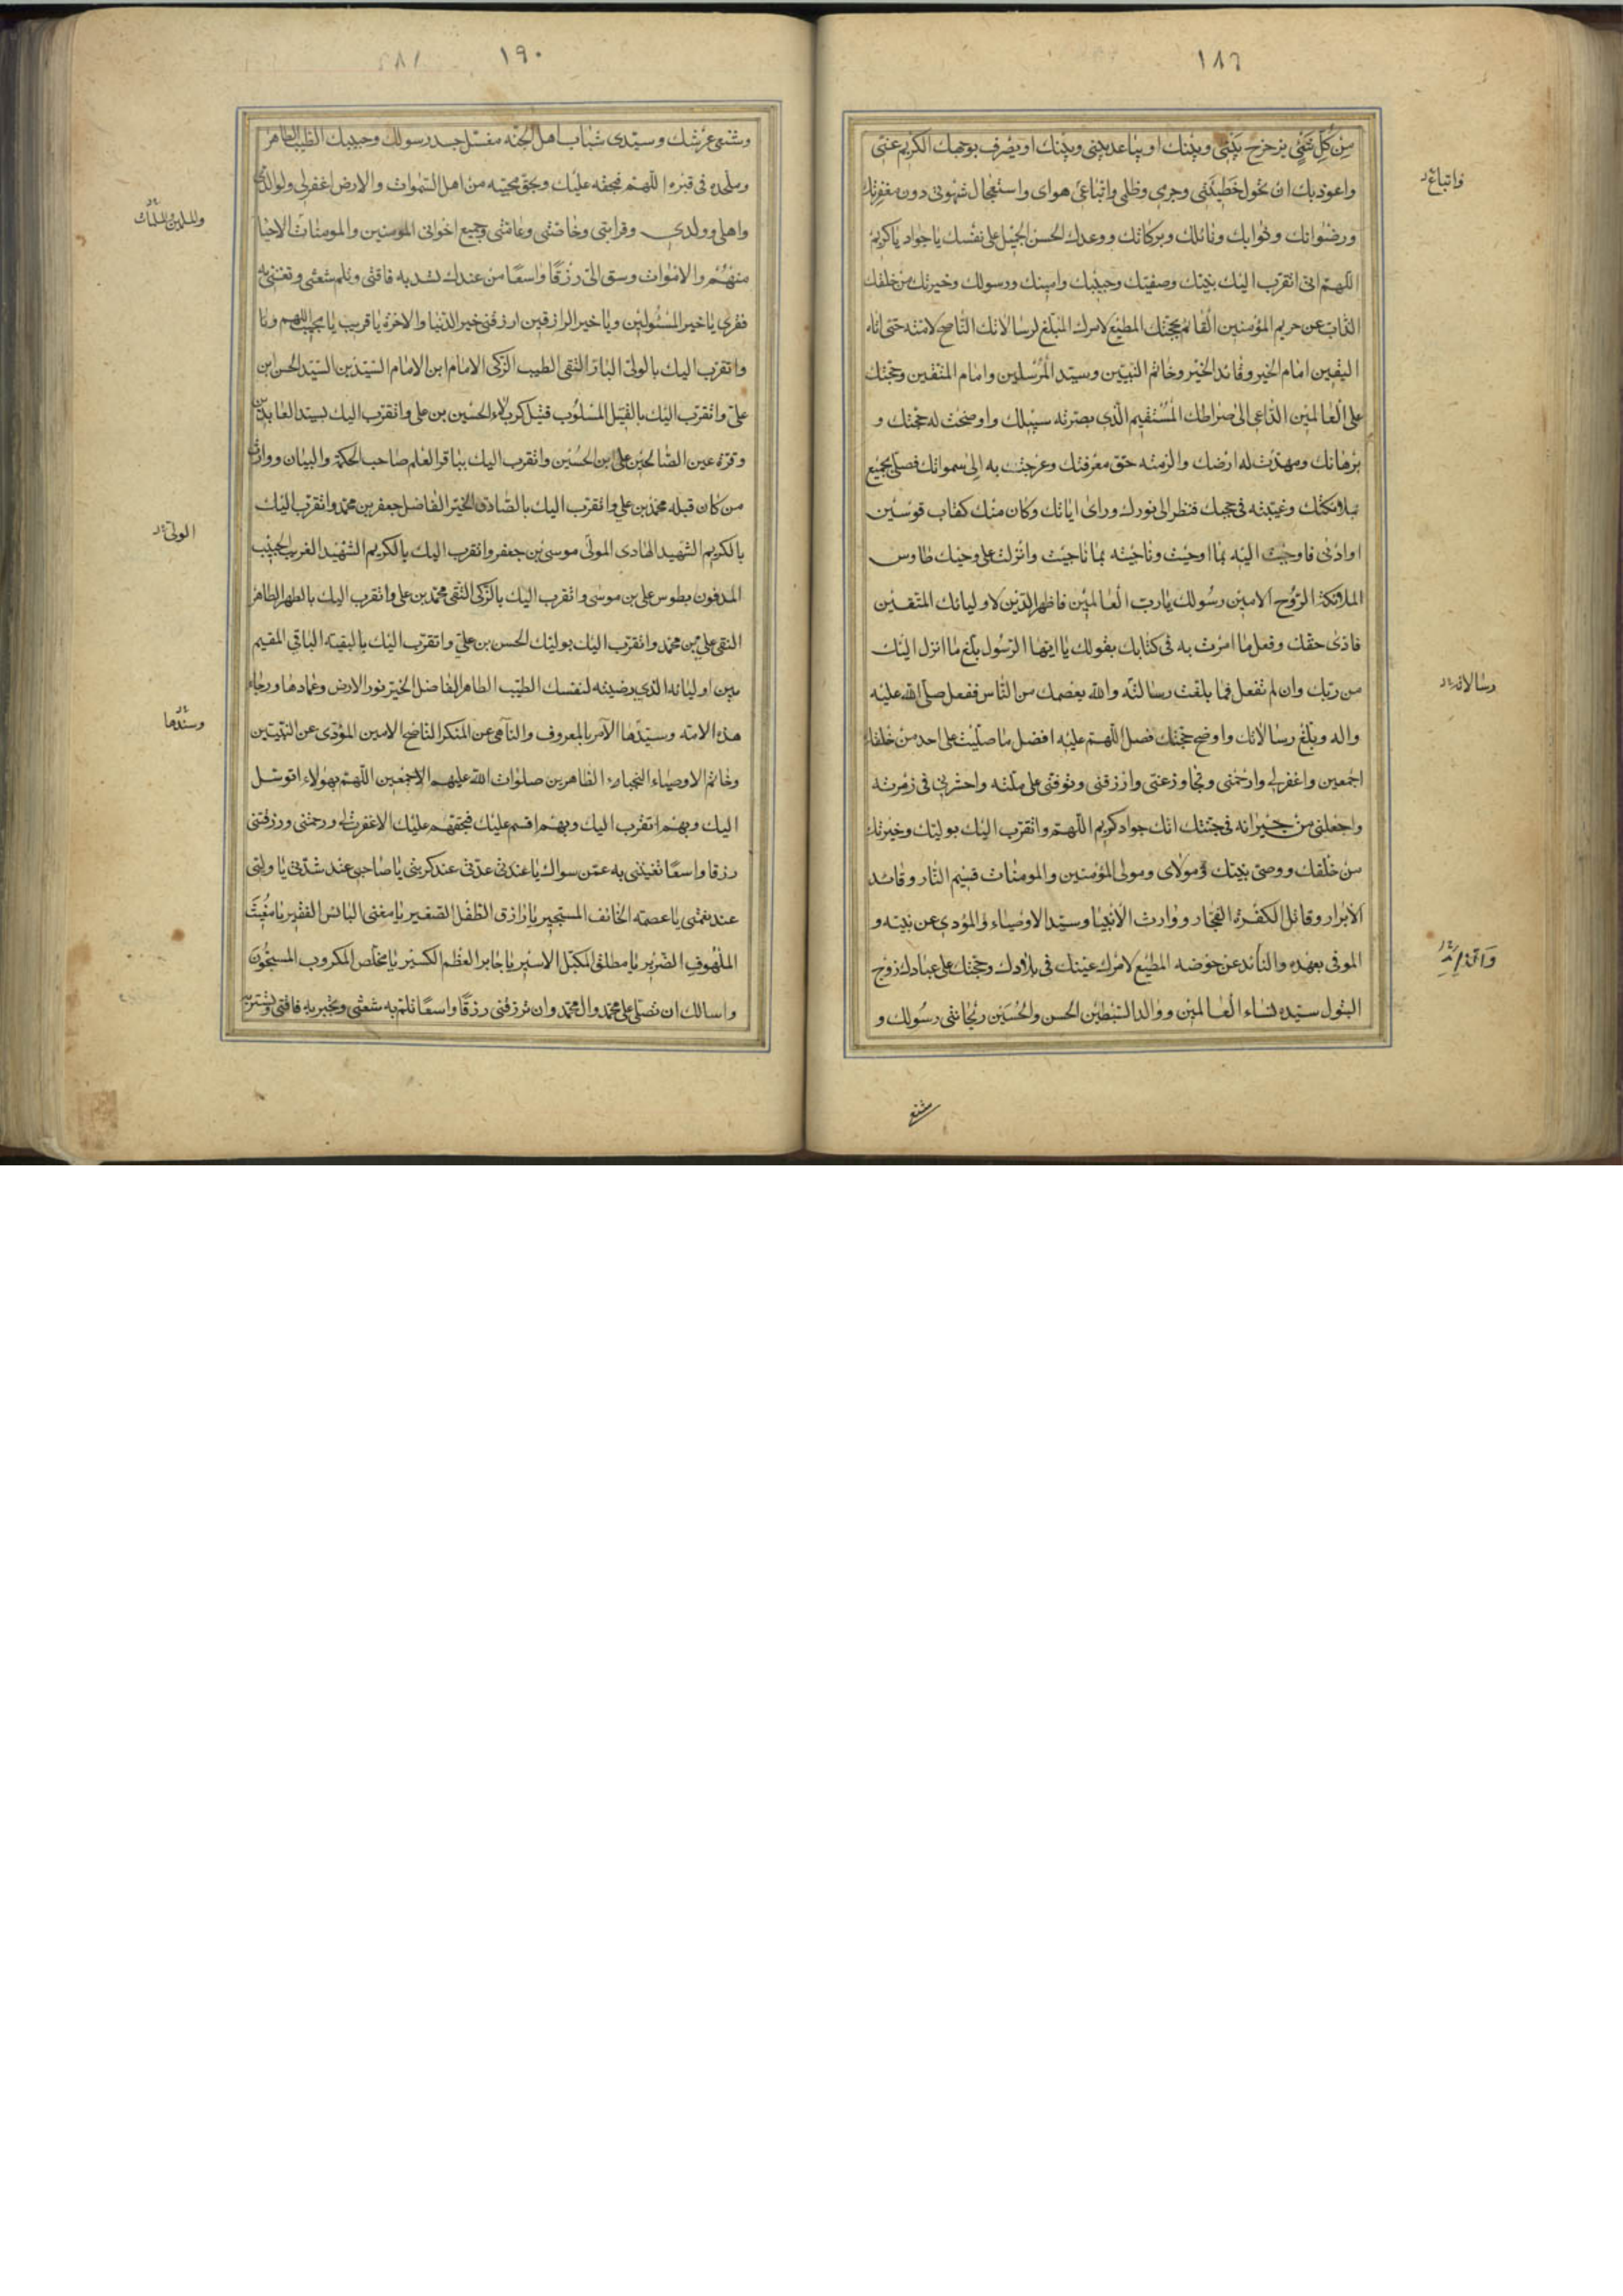 ١٨٩
من كل شئ يزحزح بينى وبينك او يباعد بينى وبينك او يصرف بوجهك الكريم عنى
واعوذ بك ان تحول خطيئتى وجرمى وظلمى واتباعى هواى واستعجال شهوتى دون مغفرتك
ورضوانك وثوابك ونائلك وبركاتك ووعدك الحسن الجميل على نفسك يا جواد يا كريم
اللهم انى اتقرب اليك بنبيك وصفيك وحبيبك وامينك ورسولك وخيرتك من خلقك
الذاب عن حريم المؤمنين القائم بحجتك المطيع لامرك المبلغ لرسالاتك الناصح لامته حتى اتاه
اليقين امام الخير وقائد الخير وخاتم النبيين وسيد المرسلين وامام المتقين وحجتك
على العالمين الداعى الى صراطك المستقيم الذى بصرته سبيلك واوضحت له حجتك و
برهانك ومهدت له ارضك والزمته حق معرفتك وعرجت به الى سمواتك فصلى بجميع
ملائكتك وغيبته فى حجبك فنظر الى نورك وراى اياتك وكان منك كقاب قوسين
او ادنى فاوحيت اليه بما اوحيت وناجيته بما ناجيت وانزلت على وحيك طاوس
الملائكة الروح الامين رسولك يا رب العالمين فاظهر الدين لاوليائك المتقين
فادى حقك وفعل ما امرت به فى كتابك بقولك يا ايها الرسول بلغ ما انزل اليك
من ربك وان لم تفعل فما بلغت رسالته والله يعصمك من الناس ففعل صلى الله عليه
واله وبلغ رسالاتك واوضح حجتك فصل اللهم عليه افضل ما صليت على احد من خلقك
اجمعين واغفر لى وارحمنى وتجاوز عنى وارزقنى وتوفنى على ملته واحشرنى فى زمرته
واجعلنى من جيرانه فى جنتك انك جواد كريم اللهم واتقرب اليك بوليك وخيرتك
من خلقك ووصى نبيك مولاى ومولى المؤمنين والمومنات قسيم النار وقائد
الابرار وقاتل الكفرة الفجار ووارث الانبيا وسيد الاوصياء والمؤدى عن نبيه و
الموفى بعهده والذائد عن حوضه المطيع لامرك عينك فى بلادك وحجتك على عبادك زوج
البتول سيدة نساء العالمين ووالد السبطين الحسن والحسين ريحانتى رسولك و
واتباع
رسالاته
١٩٠
وشنفى عرشك وسيدى شباب اهل الجنة مغسل جسد رسولك وحبيبك الطيب الطاهر
وملحده فى قبره اللهم فبحقه عليك وبحق محبيه من اهل السموات والارض اغفر لى ولوالدى
واهلى وولدى وقرابتى وخاصتى وعامتى وجميع اخوانى المومنين والمومنات الاحيا
منهم والاموات وسق الى رزقا واسعا من عندك تسد به فاقتى وتلم شعثى وتغنى به
فقرى يا خير المسئولين ويا خير الرازقين ارزقنى خير الدنيا والاخرة يا قريب يا مجيب اللهم وانا
واتقرب اليك بالولى البار التقى الطيب الزكى الامام ابن الامام السيد بن السيد الحسن بن
على واتقرب اليك بالقتيل المسلوب قتيل كربلاء الحسين بن على واتقرب اليك بسيد العابدين
وقرة عين الصالحين على بن الحسين واتقرب اليك بباقر العلم صاحب الحكمة والبيان ووارث
من كان قبله محمد بن على واتقرب اليك بالصادق الخير الفاضل جعفر بن محمد واتقرب اليك
بالكريم الشهيد الهادى المولى موسى بن جعفر واتقرب اليك بالكريم الشهيد الغريب الحبيب
المدفون بطوس على بن موسى واتقرب اليك بالزكى التقى محمد بن على واتقرب اليك بالطهر الطاهر
النقى على بن محمد واتقرب اليك بوليك الحسن بن على واتقرب اليك بالبقية الباقى المقيم
بين اوليائه الذى رضيته لنفسك الطيب الطاهر الفاضل الخير نور الارض وعمادها ورجاء
هذه الامة وسيدها الآمر بالمعروف والناهى عن المنكر الناصح الامين المؤدى عن النبيين
وخاتم الاوصياء النجباء الطاهرين صلوات الله عليهم اجمعين اللهم بهولاء اتوسل
اليك وبهم اتقرب اليك وبهم اقسم عليك فبحقهم عليك الا غفرت لى ورحمتنى ورزقتنى
رزقا واسعا تغنينى به عمن سواك يا عدتى عند كربتى يا صاحبى عند شدتى يا وليى
عند نعمتى يا عصمة الخائف المستجير يا رازق الطفل الصغير يا مغنى البائس الفقير يا مغيث
الملهوف الضرير يا مطلق المكبل الاسير يا جابر العظم الكسير يا مخلص المكروب المسجون
واسالك ان تصلى على محمد وال محمد وان ترزقنى رزقا واسعا تلم به شعثى وتجبر به فاقتى وتستر به
والمسلمين والمسلمات
الولى
وسندها